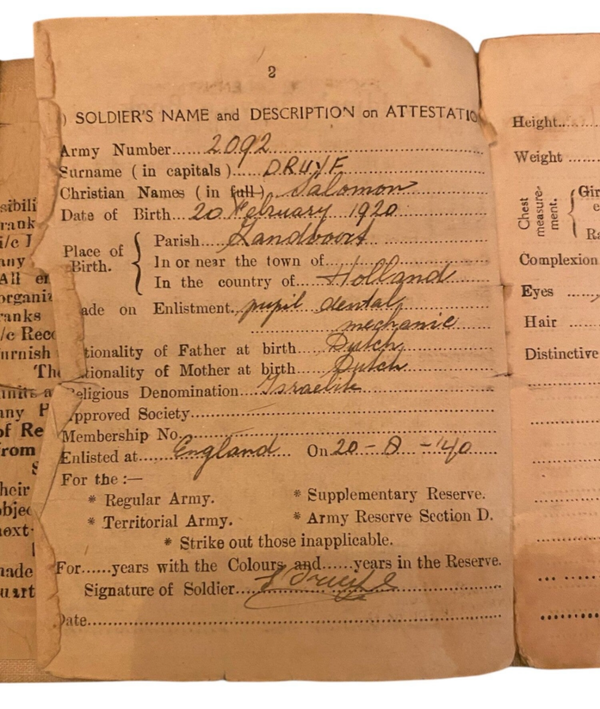 2
) SOLDIER'S NAME and DESCRIPTION on ATTESTATIO
Army Number 2092
Surname (in capitals) DRUYF
Christian Names (in full) Salomon
Date of Birth 20 February 1920
Place of Birth. Parish Zandvoort
In or near the town of
In the country of Holland
ade on Enlistment pupil dental
mechanic
tionality of Father at birth Dutch
tionality of Mother at birth Dutch
eligious Denomination Israelite
pproved Society
Membership No.
Enlisted at England On 20-8-'40
For the :—
* Regular Army. * Supplementary Reserve.
* Territorial Army. * Army Reserve Section D.
* Strike out those inapplicable.
For......years with the Colours and......years in the Reserve.
Signature of Soldier
Date
Height
Weight
Chest measure-ment. { Gir
Ra
Complexion
Eyes
Hair
Distinctive
sibili
rank
i/c
any
All er
organiz
ranks
/c Reco
urnish
Th
units a
any
of Re
from
S
heir
obje
next-
made
uart